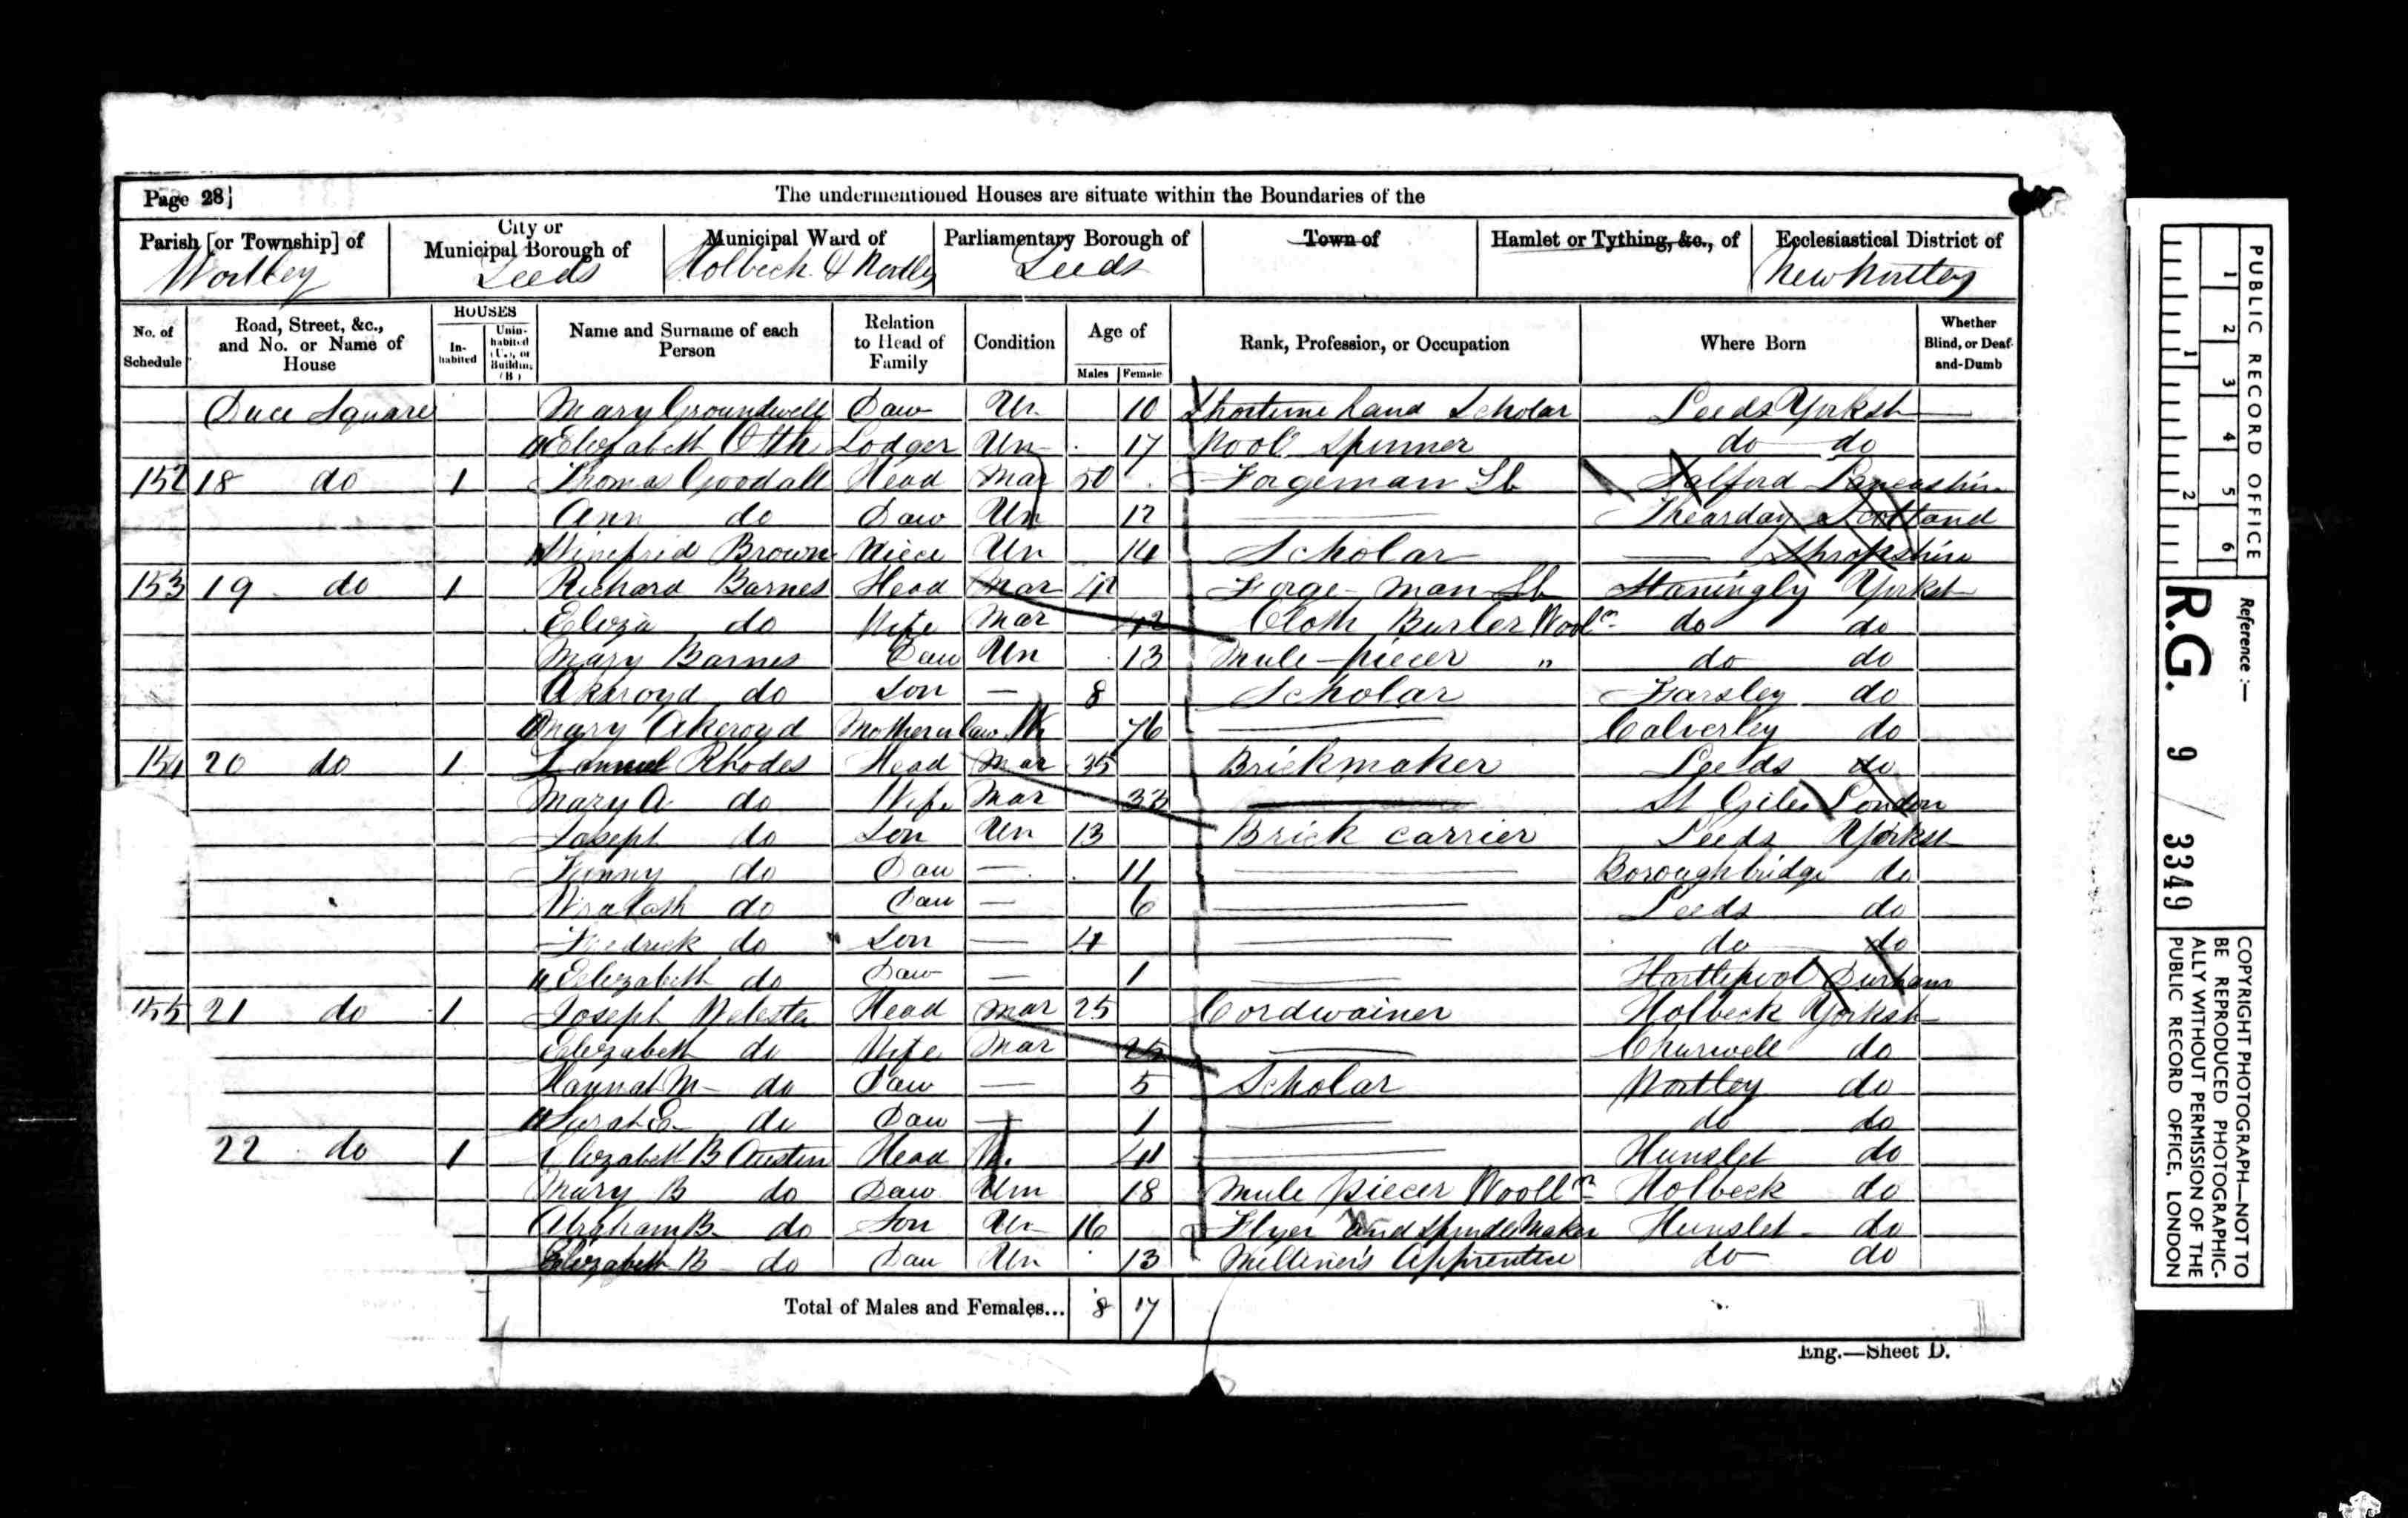 Page 28]
The undermentioned Houses are situate within the Boundaries of the
Parish [or Township] of Wortley
City or Municipal Borough of Leeds
Municipal Ward of Holbeck & Wortley
Parliamentary Borough of Leeds
Town of
Hamlet or Tything, &c., of
Ecclesiastical District of New Wortley
No. of Schedule
Road, Street, &c., and No. or Name of House
HOUSES
In-habited
Unin-habited (U.), or Building (B)
Name and Surname of each Person
Relation to Head of Family
Condition
Age of
Males
Female
Rank, Profession, or Occupation
Where Born
Whether Blind, or Deaf-and-Dumb
Square Mary Groundwell Daw Un 10 Scholar Leeds Yorksh
Elizabeth Lodger Un 17 Wool Spinner do do
152 18 do 1 Thomas Goodall Head Mar 50 Forgeman Salford Lancashire
Ann do Daw Un 12 Scotland
Winefrid Brown Niece Un 14 Scholar Shropshire
153 19 do 1 Richard Barnes Head Mar 41 Forge man Staningly Yorksh
Eliza do Wife Mar 42 Cloth Burler Wooln do do
Mary Barnes Daw Un 13 Mule piecer " do do
Akeroyd do Son — 8 Scholar Farsley do
Mary Akeroyd Mother in law W 76 Calverley do
154 20 do 1 Rhodes Head Mar 35 Brickmaker Leeds do
Mary A do Wife Mar 33 St Giles London
Joseph do Son Un 13 Brick carrier Leeds Yorksh
do Daw — 11 Boroughbridge do
do Daw — 6 Leeds do
Fredrick do Son — 4 do do
Elizabeth do Daw — 1 Hartlepool Durham
155 21 do 1 Joseph Webster Head Mar 25 Cordwainer Holbeck Yorksh
Elizabeth do Wife Mar 25 Churwell do
Hannah M do Daw — 5 Scholar Wortley do
Sarah E do Daw — 1 do do
22 do 1 Elizabeth B Austin Head W. 41 Hunslet do
Mary B do Daw Un 18 Mule piecer Woolln Holbeck do
Abraham B. do Son Un 16 Flyer and Spindle Maker Hunslet do
Elizabeth B do Dau Un 13 Milliner's Apprentice do do
Total of Males and Females... 8 17
Eng.—Sheet D.
PUBLIC RECORD OFFICE
1 2 3 4 5 6
1 2
Reference :—
R.G. 9 / 3349
COPYRIGHT PHOTOGRAPH—NOT TO
BE REPRODUCED PHOTOGRAPHIC-
ALLY WITHOUT PERMISSION OF THE
PUBLIC RECORD OFFICE, LONDON